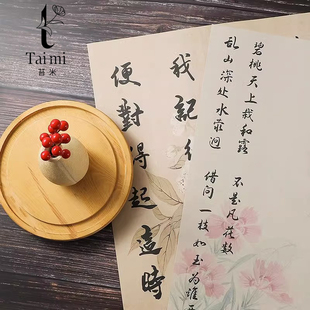 Taimi
苔米
碧桃天上栽和露
不是凡花数
乱山深处水萦洄
借问一枝如玉为谁
我記
便對得起這時